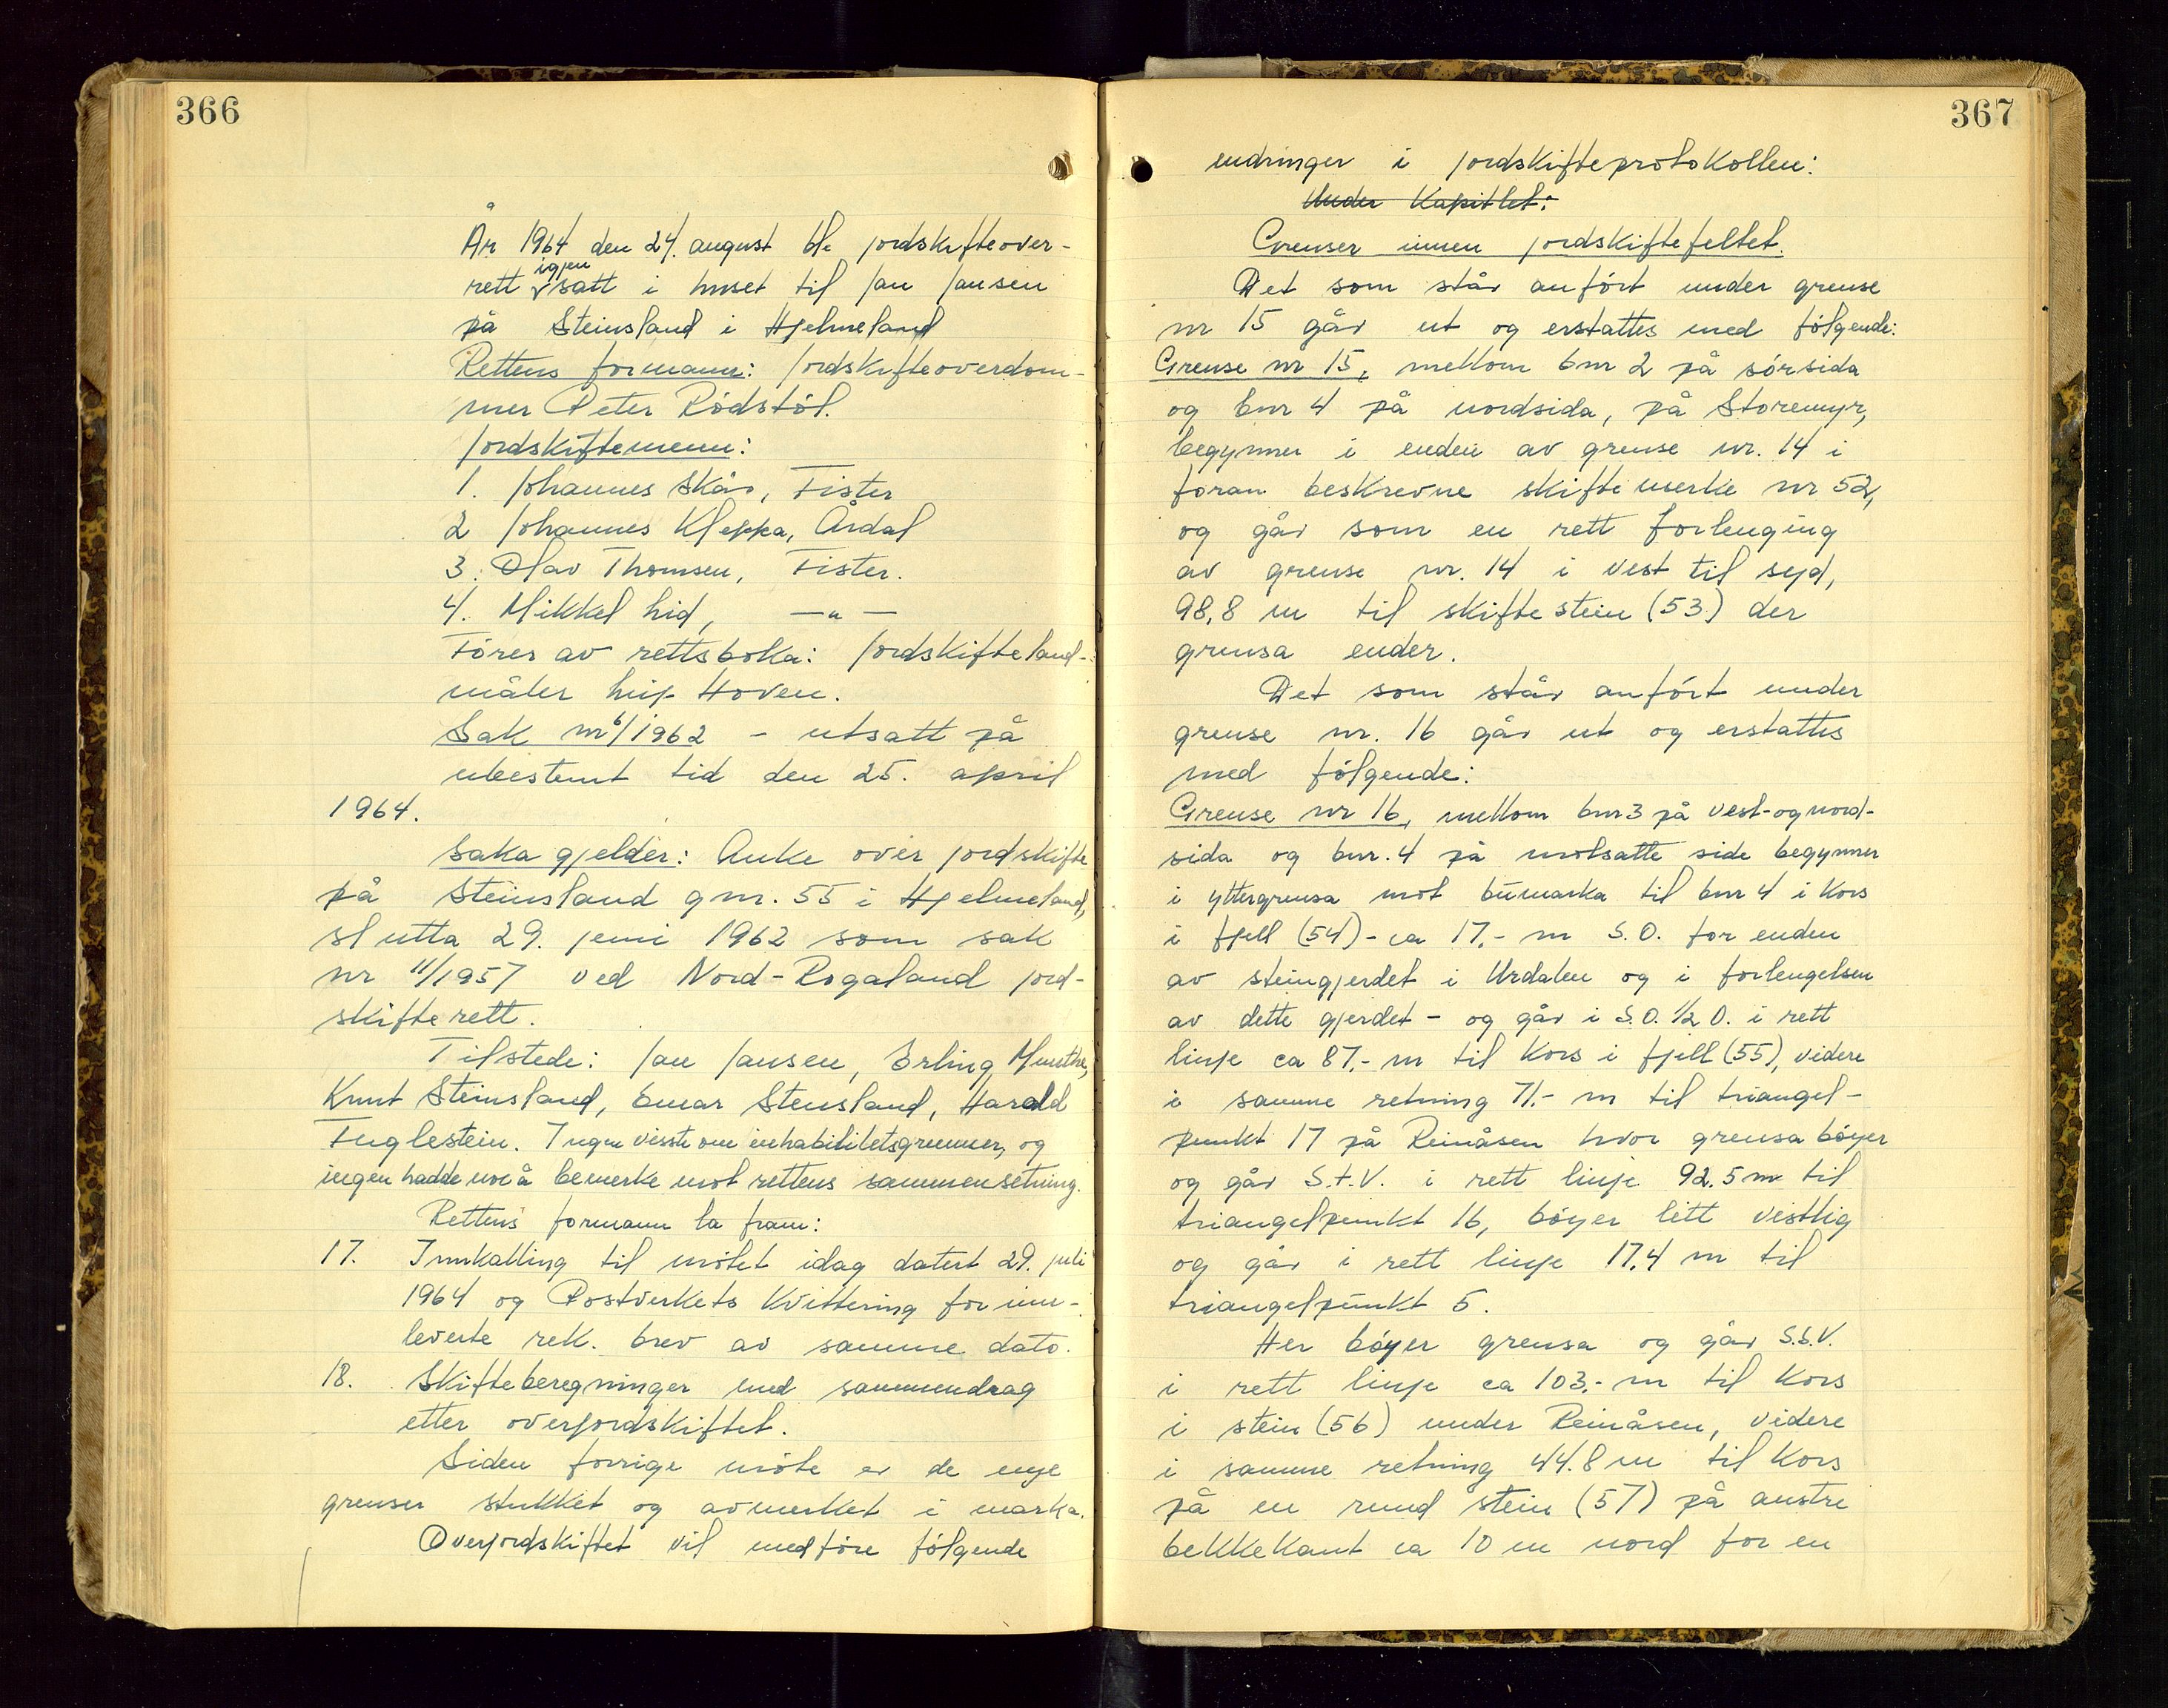 366
År 1964 den 24. august ble jordskifteover-
rett igjen satt i huset til Jan Jansen
på Steinsland i Hjelmeland
Rettens formann: Jordskifteoverdom-
mer Peter Rödstöl.
Jordskiftemenn:
1. Johannes Skår, Fister
2 Johannes Kleppa, Årdal
3. Olav Thomsen, Fister.
4. Mikkel Lid, —"—
Föres av rettsboka: Jordskifteland-
måler Leip Hoven.
Sak nr 6/1962 - utsatt på
ubestemt tid den 25. april
1964.
Saka gjelder: Anke over jordskifte
på Steinsland gnr. 55 i Hjelmeland,
slutta 29. juni 1962 som sak
nr 11/1957 ved Nord-Rogaland jord-
skifterett.
Tilstede: Jan Jansen, Erling Munthe,
Knut Steinsland, Einar Stensland, Harald
Fuglestein. Ingen visste om inhabilitetsgrunner, og
ingen hadde noe å bemerke mot rettens sammensetning.
Rettens formann la fram:
17. Innkalling til mötet idag datert 29. juli
1964 og Postverkets Kvittering for inn-
leverte rek. brev av samme dato.
18. Skifteberegninger med sammendrag
etter overjordskiftet.
Siden forrige möte er de nye
grenser stukket og avmerket i marka.
Overjordskiftet vil medföre fölgende
367
endringer i jordskifteprotokollen:
Under Kapitlet:
Grenser innen jordskiftefeltet.
Det som står anfört under grense
nr 15 går ut og erstattes med fölgende:
Grense nr 15, mellom bnr 2 på sörsida
og bnr 4 på nordsida, på Storemyr,
begynner i enden av grense nr. 14 i
foran beskrevne skiftemerke nr 52,
og går som en rett forlenging
av grense nr. 14 i vest til syd,
98,8 m til skiftestein (53) der
grensa ender.
Det som står anfört under
grense nr. 16 går ut og erstattes
med fölgende:
Grense nr 16, mellom bnr 3 på vest-og nord-
sida og bnr. 4 på motsatte side begynner
i yttergrensa mot bumarka til bnr 4 i Kors
i fjell (54) - ca 17,- m S.O. for enden
av steingjerdet i Urdalen og i forlengelsen
av dette gjerdet - og går i S.O. 1/2 O. i rett
linje ca 87,- m til Kors i fjell (55), videre
i samme retning 71.- m til triangel-
punkt 17 på Reinåsen hvor grensa böyer
og går S.t.V. i rett linje 92.5 m til
triangelpunkt 16, böyer litt vestlig
og går i rett linje 17,4 m til
triangelpunkt 5.
Her böyer grensa og går S.S.V.
i rett linje ca 103,- m til Kors
i stein (56) under Reinåsen, videre
i samme retning 44.8 m til Kors
på en rund stein (57) på austre
bekkekant ca 10 m nord for en